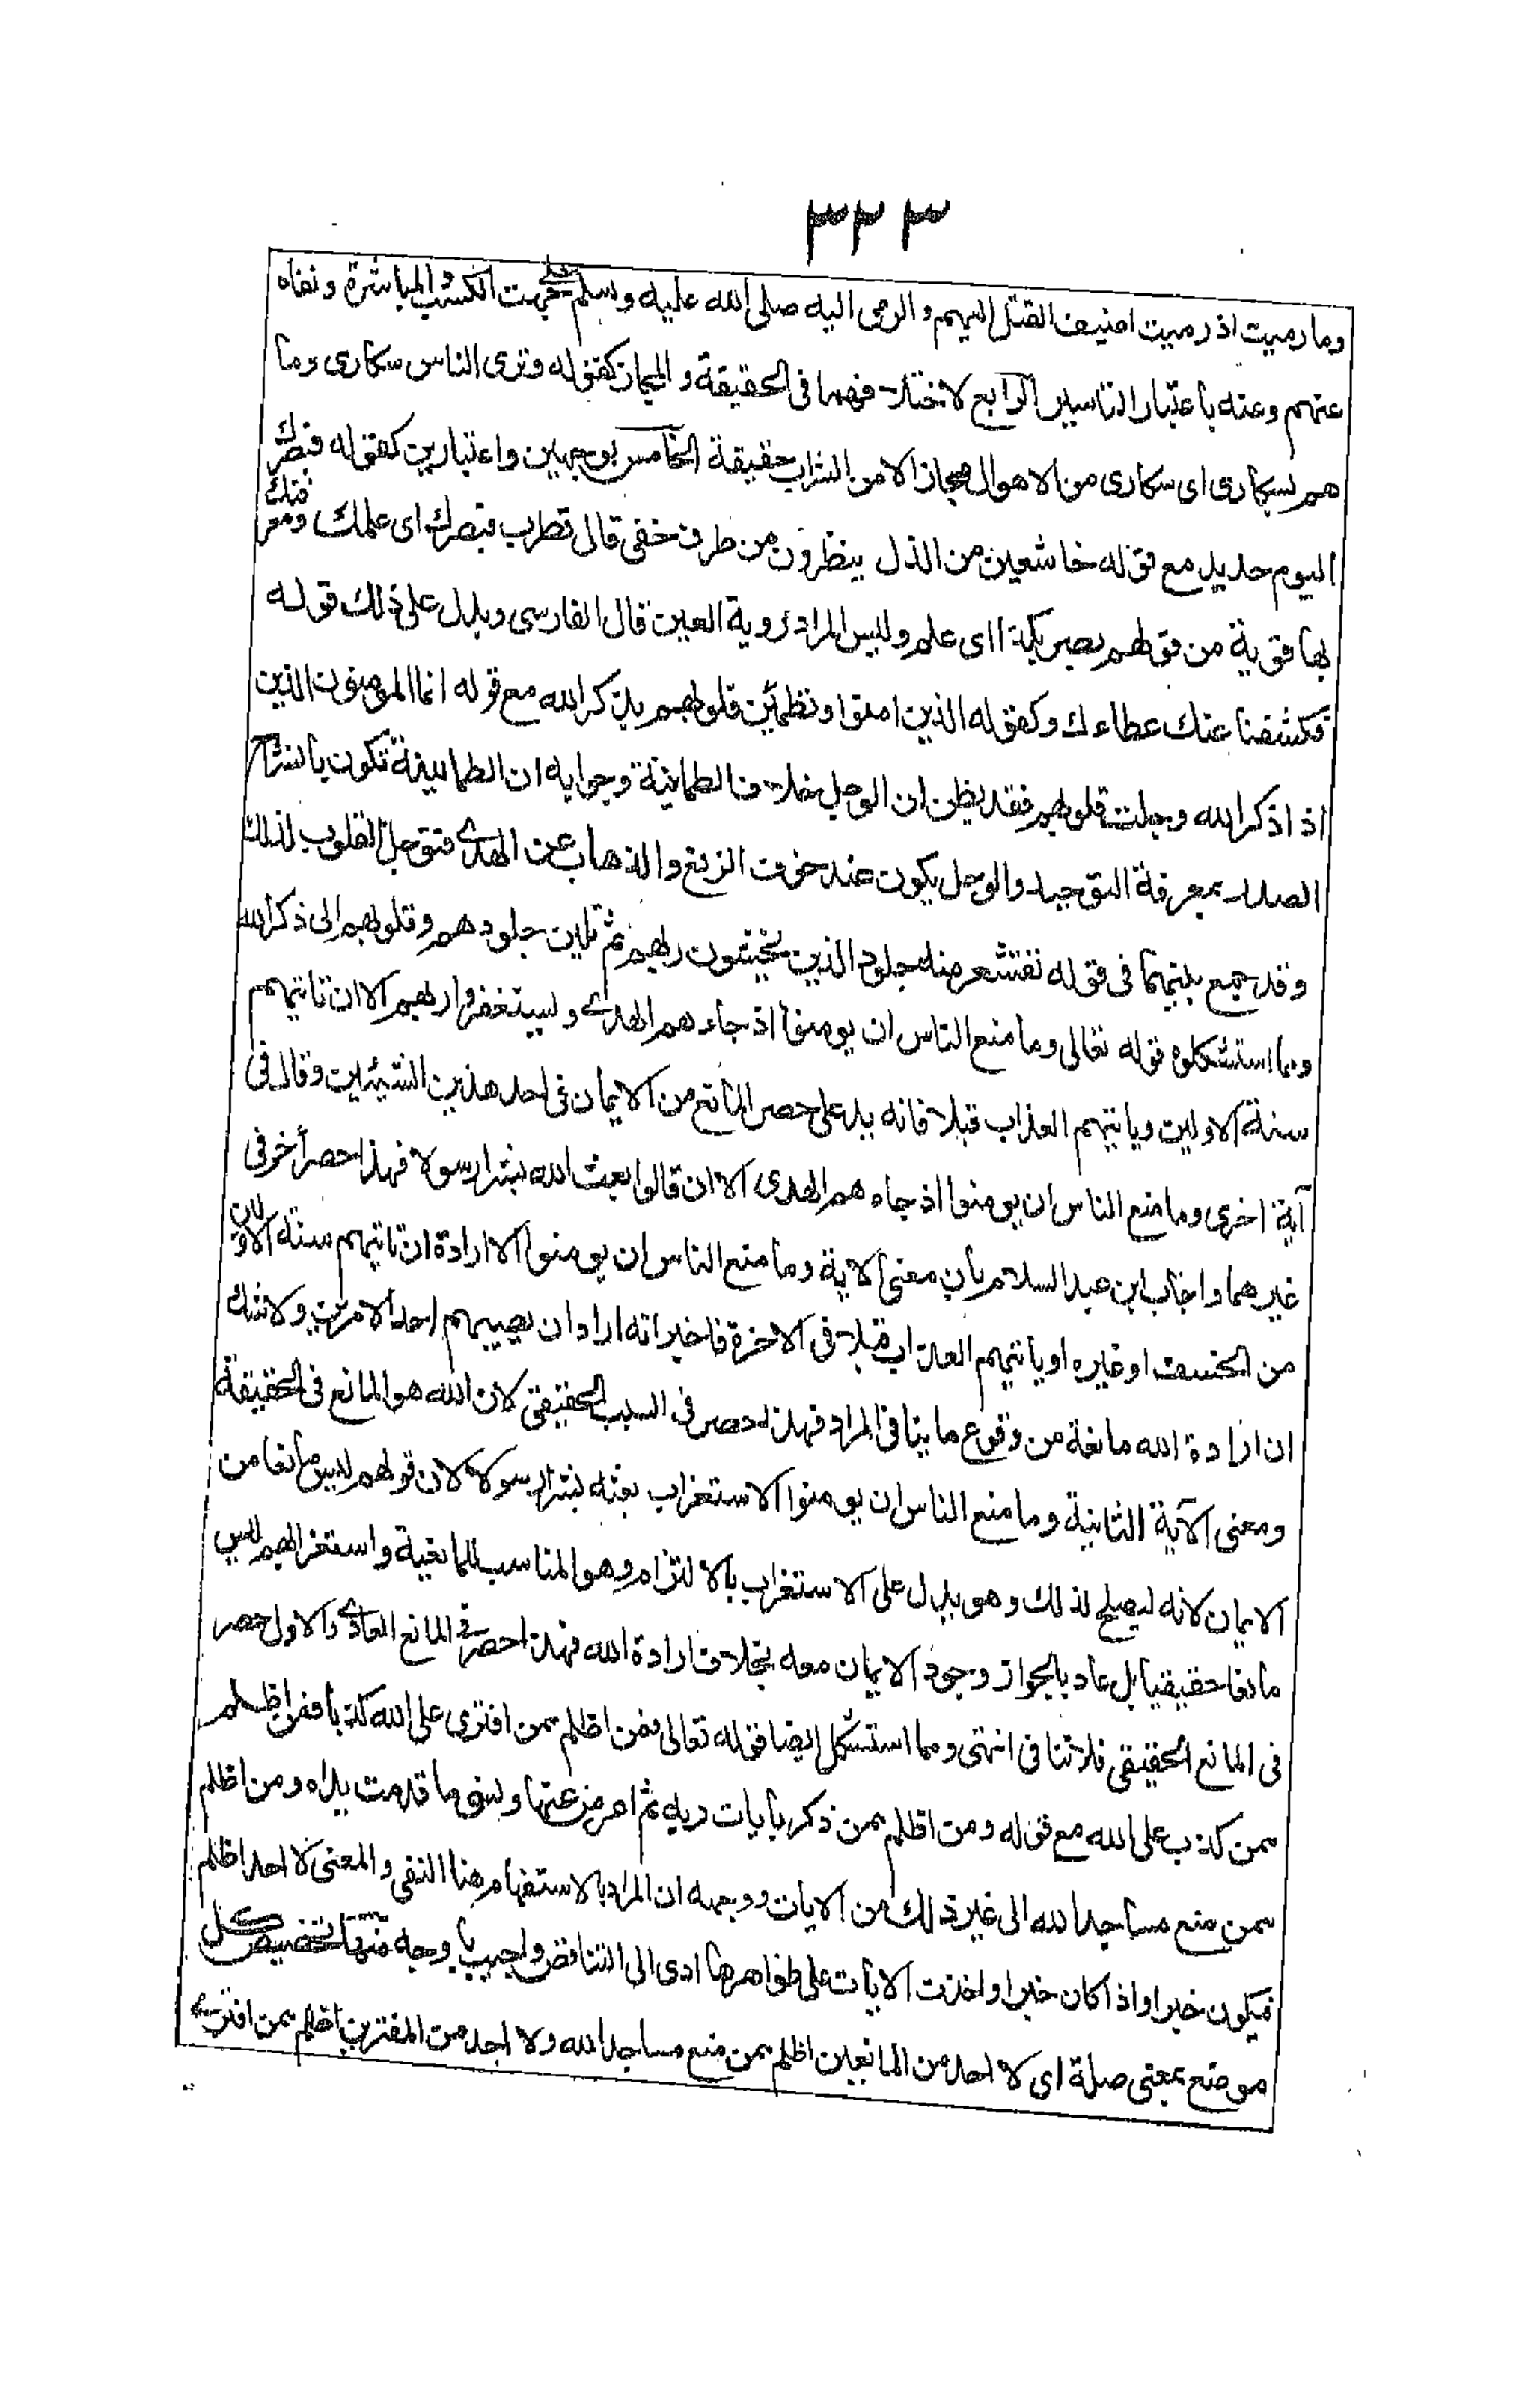 ٣٢٣
وما رميت اذ رميت اضيف القتل اليهم والرمى اليه صلى الله عليه وسلم على جهت الكسب والمباشرة ونفاه
عنهم وعنه باعتبار التاسير الرابع لاختلافهما فى الحقيقة والمجاز كقوله وترى الناس سكارى وما
هم بسكارى اى سكارى من الاهوال مجازا لا من الشراب حقيقة الخامس بوجهين واعتبارين كقوله فبصرك
اليوم حديد مع قوله خاشعين من الذل ينظرون من طرف خفى قال قطرب فبصرك اى علمك ومعرفتك
بها قوية من قولهم بصر بكذا اى علم وليس المراد روية العين قال الفارسى ويدل على ذلك قوله
فكشفنا عنك عطاءك وكقوله الذين امنوا وتطمئن قلوبهم بذكر الله مع قوله انما المومنون الذين
اذا ذكر الله وجلت قلوبهم فقد يظن ان الوجل خلاف الطمانية وجوابه ان الطمانينة تكون بانشراح
الصدر بمعرفة التوحيد والوجل يكون عند خوف الزيغ والذهاب عن الهدى فتوجل القلوب لذلك
وقد جمع بينهما فى قوله تقشعر منه جلود الذين يخشون ربهم ثم تلين جلودهم وقلوبهم الى ذكر الله
ومما استشكلوه قوله تعالى وما منع الناس ان يومنوا اذ جاءهم الهدى ويستغفروا ربهم الا ان تاتيهم
سنة الاولين وياتيهم العذاب قبلا فانه يد على حصر المانع من الايمان فى احد هذين الشيئين وقال فى
آية اخرى وما منع الناس ان يومنوا اذ جاءهم الهدى الا ان قالوا بعث الله بشرا رسولا فهذا حصر أخر فى
غيرهما واجاب ابن عبد السلام بان معنى الاية وما منع الناس ان يومنوا الا ارادة ان تاتيهم سنة الاولين
من الخسف او غيره او ياتيهم العذاب قبلا فى الاخرة فاخبر انه اراد ان يصيبهم احد الامرين ولا شك
ان ارادة الله مانعة من وقوع ما ينافى المراد فهذا حصر فى السبب الحقيقى لان الله هو المانع فى الحقيقة
ومعنى الآية الثانية وما منع الناس ان يومنوا الا ستغراب بعثه بشرا رسولا لان قولهم ليس مانعا من
الايمان لانه ليصلح لذلك وهو يدل على الاستغراب بالالتزام وهو المناسب للمانعية واستغرابهم ليس
مانعا حقيقيا بل عاديا لجواز وجود الايمان معه بخلاف ارادة الله فهذا حصر فى المانع العادى والاول حصر
فى المانع الحقيقى فلا تنافى انتهى ومما استشكل ايضا قوله تعالى فمن اظلم ممن افترى على الله كذبا فمن اظلم
ممن كذب على الله مع قوله ومن اظلم ممن ذكر بايات ربه ثم اعرض عنها ونسى ما قدمت يداه ومن اظلم
ممن منع مساجد الله الى غير ذلك من الايات ووجهه ان المراد بالاستفهام هنا النفى والمعنى لا احد اظلم
فيكون خبرا واذا كان خبرا واخذت الايات على ظواهرها ادى الى التناقض واجيب باوجه منها تخصيص كل
موضع بمعنى صلة اى لا احد من المانعين اظلم ممن منع مساجد الله ولا احد من المفترين اظلم ممن افترى